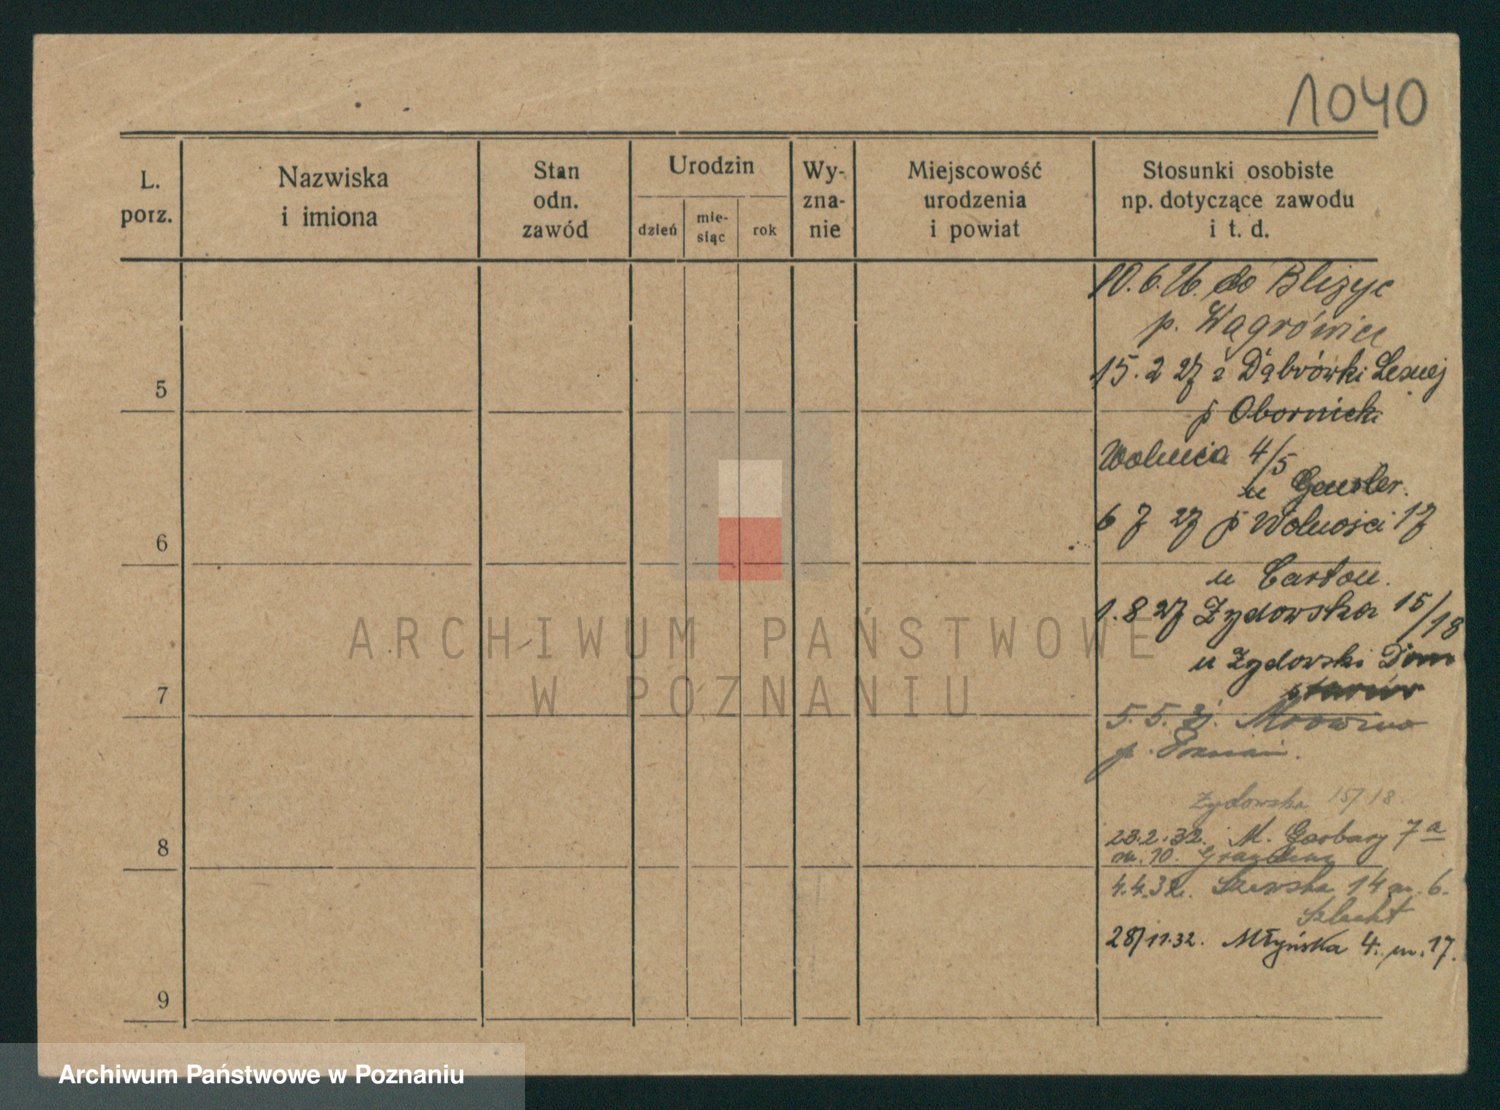 1040
L.
porz.
Nazwiska
i imiona
Stan
odn.
zawód
Urodzin
dzień
mie-
siąc
rok
Wy-
zna-
nie
Miejscowość
urodzenia
i powiat
Stosunki osobiste
np. dotyczące zawodu
i t. d.
10.6.26. do Bliżyc
p. Wągrówiec
15.2 27 z Dąbrówki Leśnej
5
p Obornicki
Wolnica 4/5
u
6 7 27 p Wolności 17
6
u
1.8 27 Żydowska 15/18
u Żydowski Dom
starców
7
5.5. Mrowino
p. Poznań.
Żydowska 15/18.
23.2.32. M. Garbary 7a
8
m. 10.
4.4.32. Szewska 14 m. 6.
Szlacht
28/11.32. Młyńska 4. m. 17.
9
ARCHIWUM PAŃSTWOWE
W POZNANIU
Archiwum Państwowe w Poznaniu